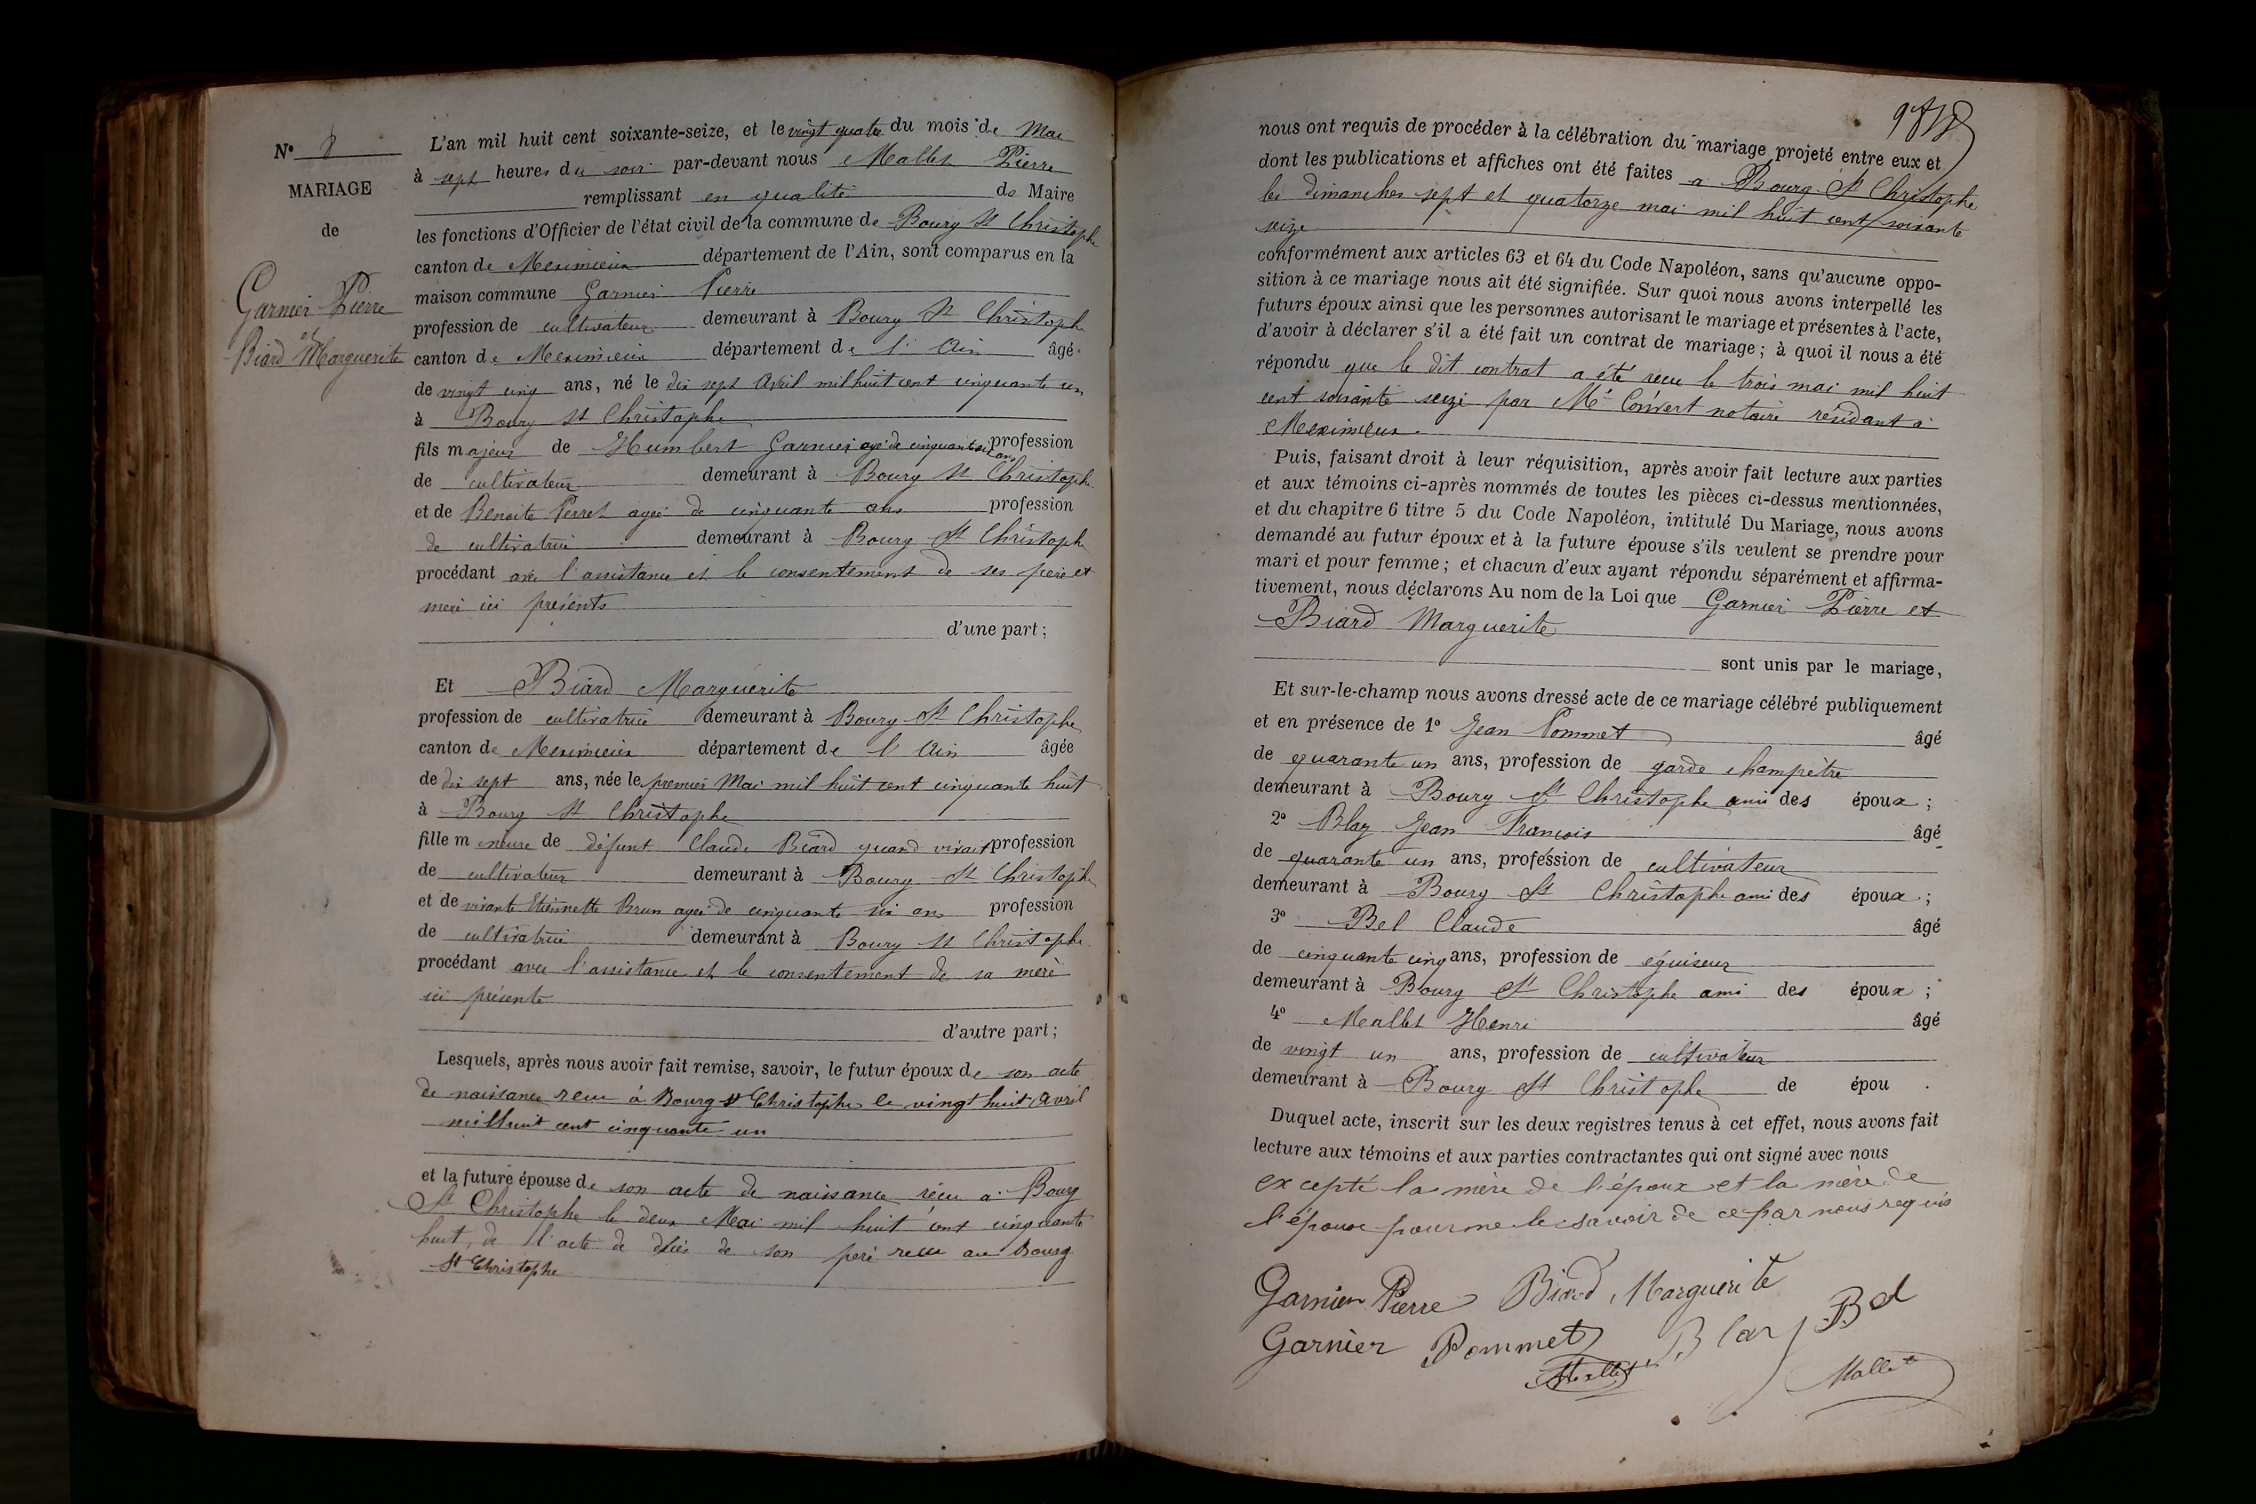 N° 8
MARIAGE
de
Garnier Pierre
et
Biard Marguerite
L'an mil huit cent soixante-seize, et le vingt quatre du mois de Mai
à sept heures du soir par-devant nous Mallet Pierre
remplissant en qualité de Maire
les fonctions d'Officier de l'état civil de la commune de Bourg St Christophe
canton de Meximieux département de l'Ain, sont comparus en la
maison commune Garnier Pierre
profession de cultivateur demeurant à Bourg St Christophe
canton de Meximieux département de l'Ain âgé
de vingt cinq ans, né le dix sept Avril mil huit cent cinquante un
à Bourg St Christophe
fils majeur de Humbert Garnier agé de cinquante six ans profession
de cultivateur demeurant à Bourg St Christophe
et de Benoite Perret agée de cinquante ans profession
de cultivatrice demeurant à Bourg St Christophe
procédant avec l'assistance et le consentement de ses père et
mère ici présents
d'une part;
Et Biard Marguerite
profession de cultivatrice demeurant à Bourg St Christophe
canton de Meximieux département de l'Ain âgée
de dix sept ans, née le premier Mai mil huit cent cinquante huit
à Bourg St Christophe
fille mineure de défunt Claude Biard quand vivait profession
de cultivateur demeurant à Bourg St Christophe
et de vivante Etiennette Brun agée de cinquante six ans profession
de cultivatrice demeurant à Bourg St Christophe
procédant avec l'assistance et le consentement de sa mère
ici présente
d'autre part;
Lesquels, après nous avoir fait remise, savoir, le futur époux de son acte
de naissance recu à Bourg St Christophe le vingt huit Avril
mil huit cent cinquante un
et la future épouse de son acte de naissance récu à Bourg
St Christophe le deux Mai mil huit cent cinquante
huit, de l'acte de décès de son père recu au Bourg
St Christophe
nous ont requis de procéder à la célébration du mariage projeté entre eux et
dont les publications et affiches ont été faites à Bourg St Christophe
les dimanches sept et quatorze mai mil huit cent soixante
seize
conformément aux articles 63 et 64 du Code Napoléon, sans qu'aucune oppo-
sition à ce mariage nous ait été signifiée. Sur quoi nous avons interpellé les
futurs époux ainsi que les personnes autorisant le mariage et présentes à l'acte,
d'avoir à déclarer s'il a été fait un contrat de mariage; à quoi il nous a été
répondu que le dit contrat a été recu le trois mai mil huit
cent soixante seize par Me Convert notaire résidant à
Meximieux.
Puis, faisant droit à leur réquisition, après avoir fait lecture aux parties
et aux témoins ci-après nommés de toutes les pièces ci-dessus mentionnées,
et du chapitre 6 titre 5 du Code Napoléon, intitulé Du Mariage, nous avons
demandé au futur époux et à la future épouse s'ils veulent se prendre pour
mari et pour femme; et chacun d'eux ayant répondu séparément et affirma-
tivement, nous déclarons Au nom de la Loi que Garnier Pierre et
Biard Marguerite
sont unis par le mariage,
Et sur-le-champ nous avons dressé acte de ce mariage célébré publiquement
et en présence de 1° Jean Pommet âgé
de quarante un ans, profession de garde champêtre
demeurant à Bourg St Christophe ami des époux;
2° Blay Jean François âgé
de quarante un ans, profession de cultivateur
demeurant à Bourg St Christophe ami des époux;
3° Bel Claude âgé
de cinquante cinq ans, profession de
demeurant à Bourg St Christophe ami des époux;
4° Mallet Henri âgé
de vingt un ans, profession de cultivateur
demeurant à Bourg St Christophe de épou .
Duquel acte, inscrit sur les deux registres tenus à cet effet, nous avons fait
lecture aux témoins et aux parties contractantes qui ont signé avec nous
excepté la mère de l'époux et la mère de
l'épouse pour ne le savoir de ce par nous requis
Garnier Pierre Biard Marguerite
Garnier Pommet Blay Bel
Mallet Mallet